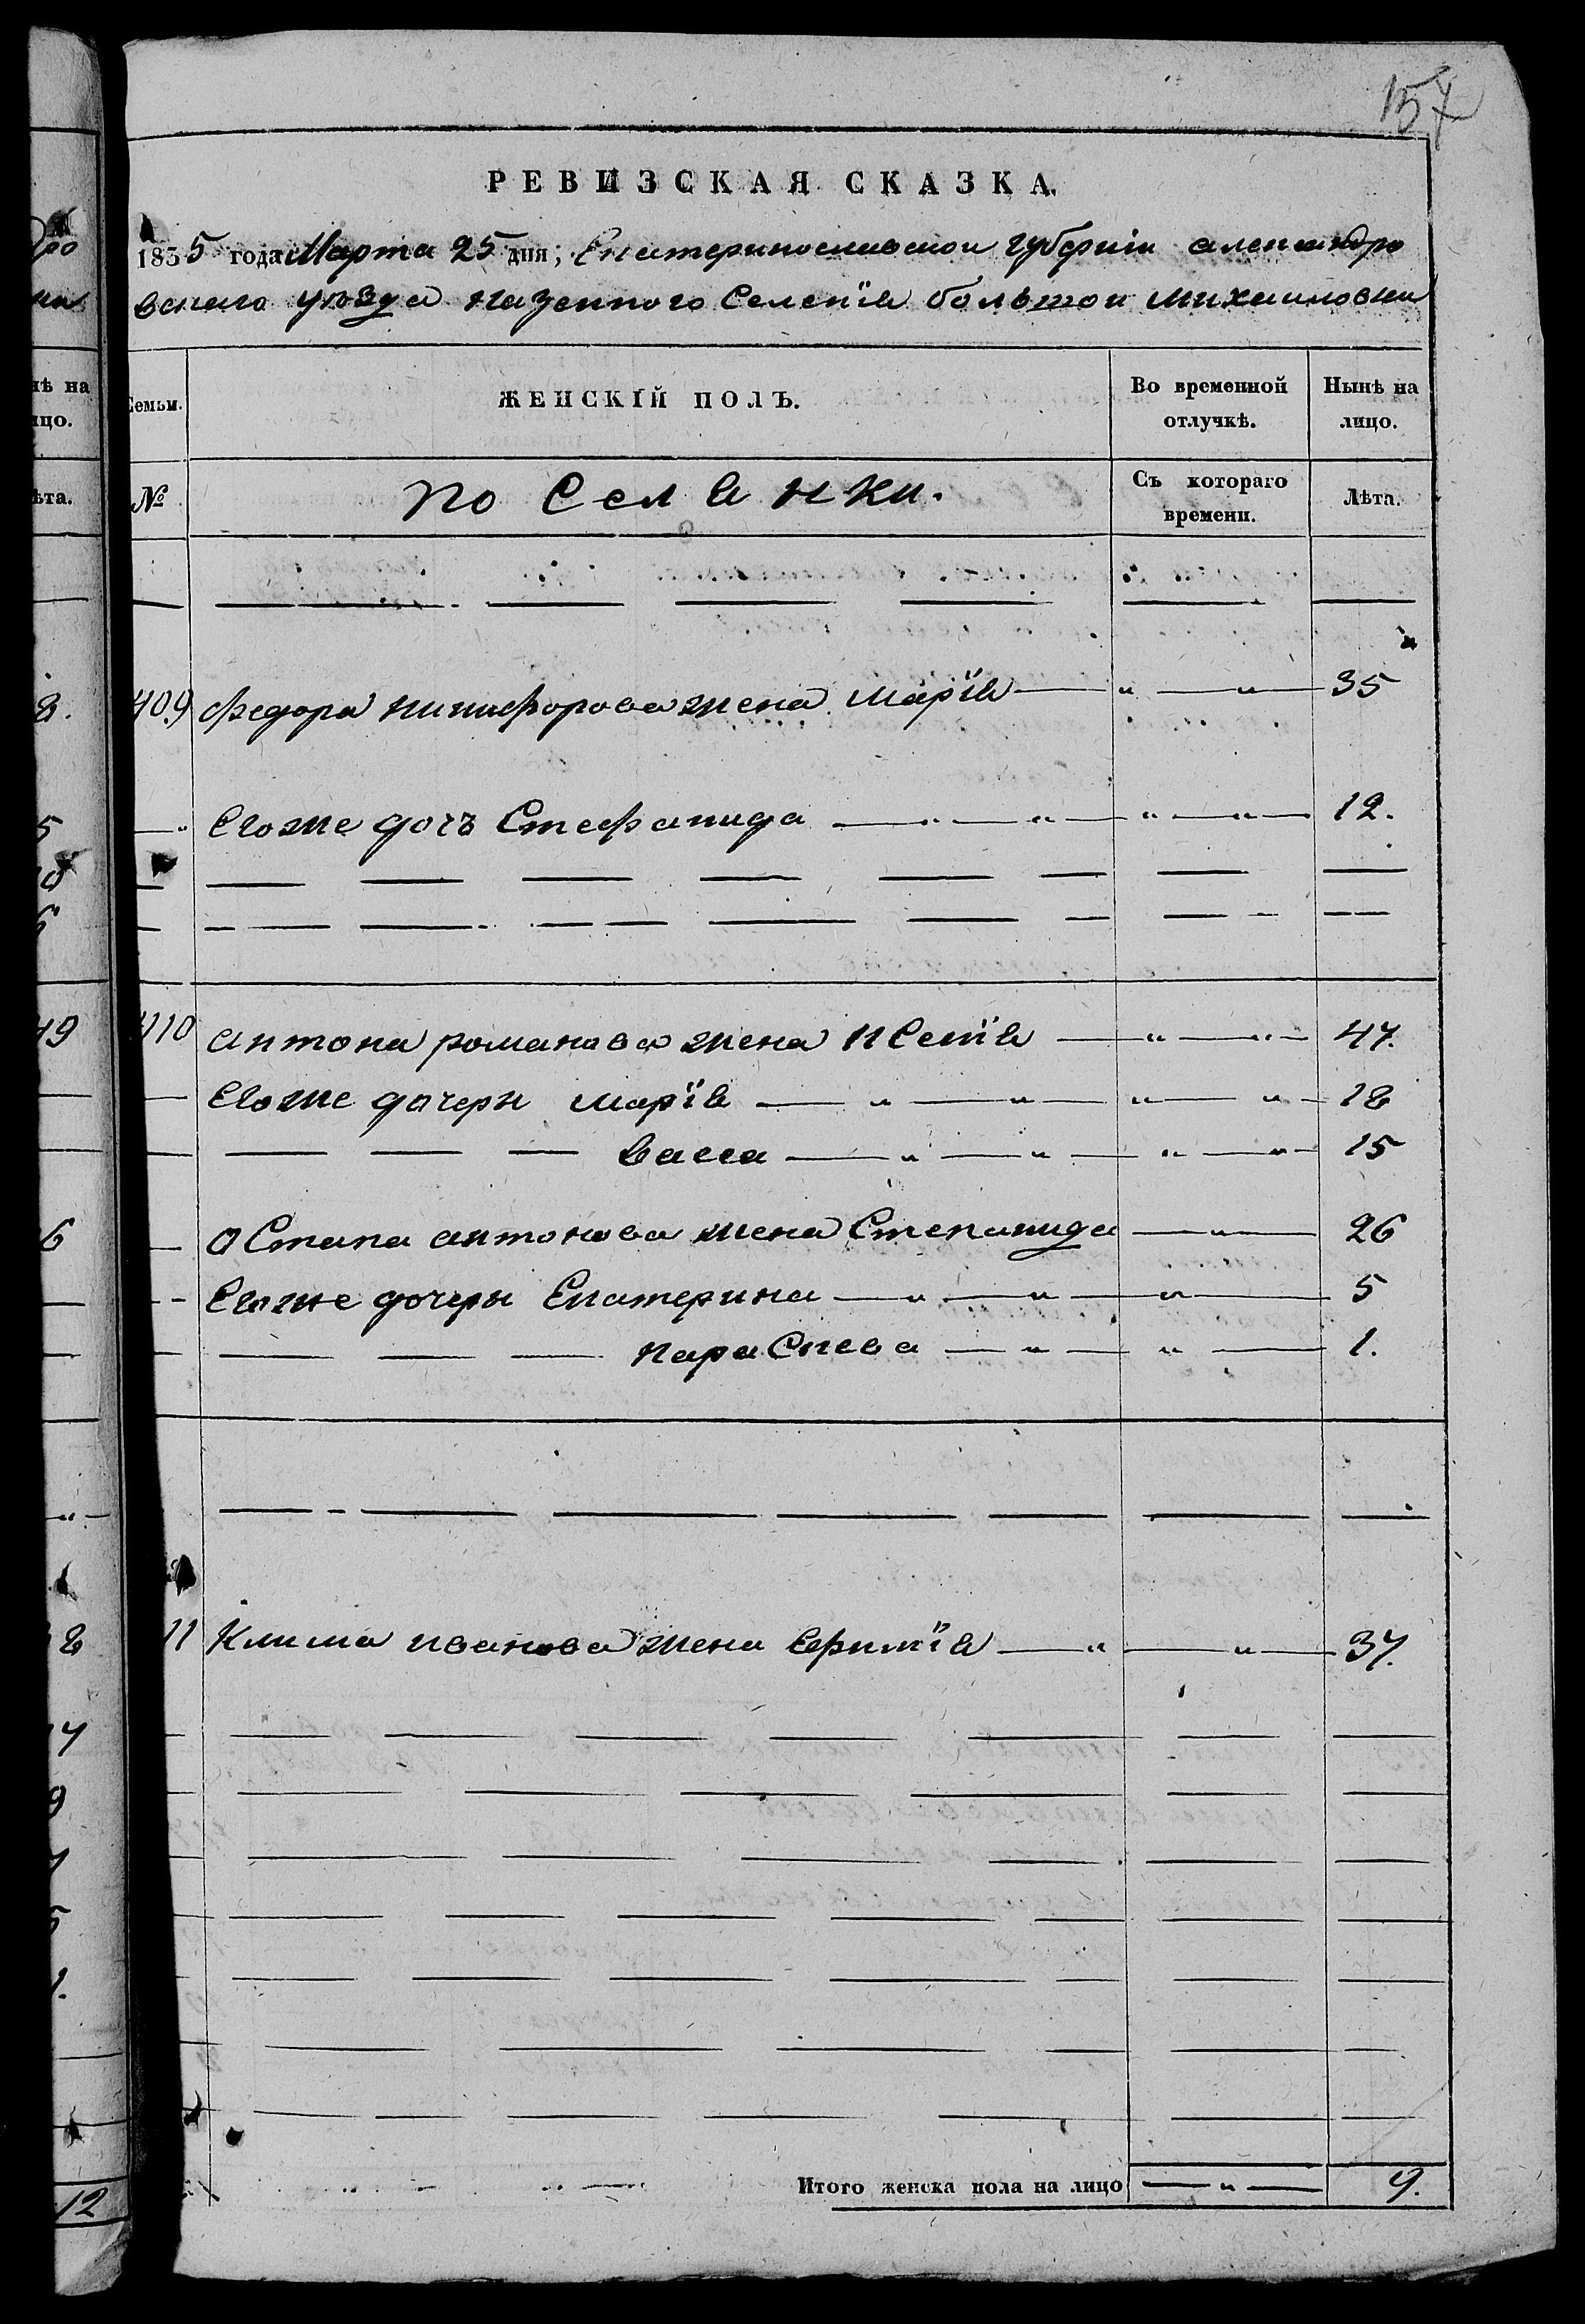 157
РЕВИЗСКАЯ СКАЗКА.
1835 года Марта 25 дня, Екатеринославской губерніи александро
вскаго уезда казенного Селенія большой михаиловки
Семьи. ЖЕНСКІЙ ПОЛЪ. Во временной отлучкѣ. Нынѣ на лицо.
№ поселянки. Съ котораго времени. Лѣта.
409 федора никифорова жена марія — „ — „ — 35
— „ Егоже дочъ Стефанида — „ — „ — „ — „ — 12.
410 антона романова жена ксенія — „ — „ — 47.
Егоже дочери марія — „ — „ — „ — „ — 18
васса — „ — „ — „ — „ — 15
остапа антонова жена Степанида — „ — 26
Егоже дочери Екатерина — „ — „ — „ — 5
параскева — „ — „ — 1.
11 клима иванова жена ефимія — „ — „ — 37.
Итого женска пола на лицо — „ — 9.
нѣ на
ицо.
ѣта.
8.
5
49
6
8
12